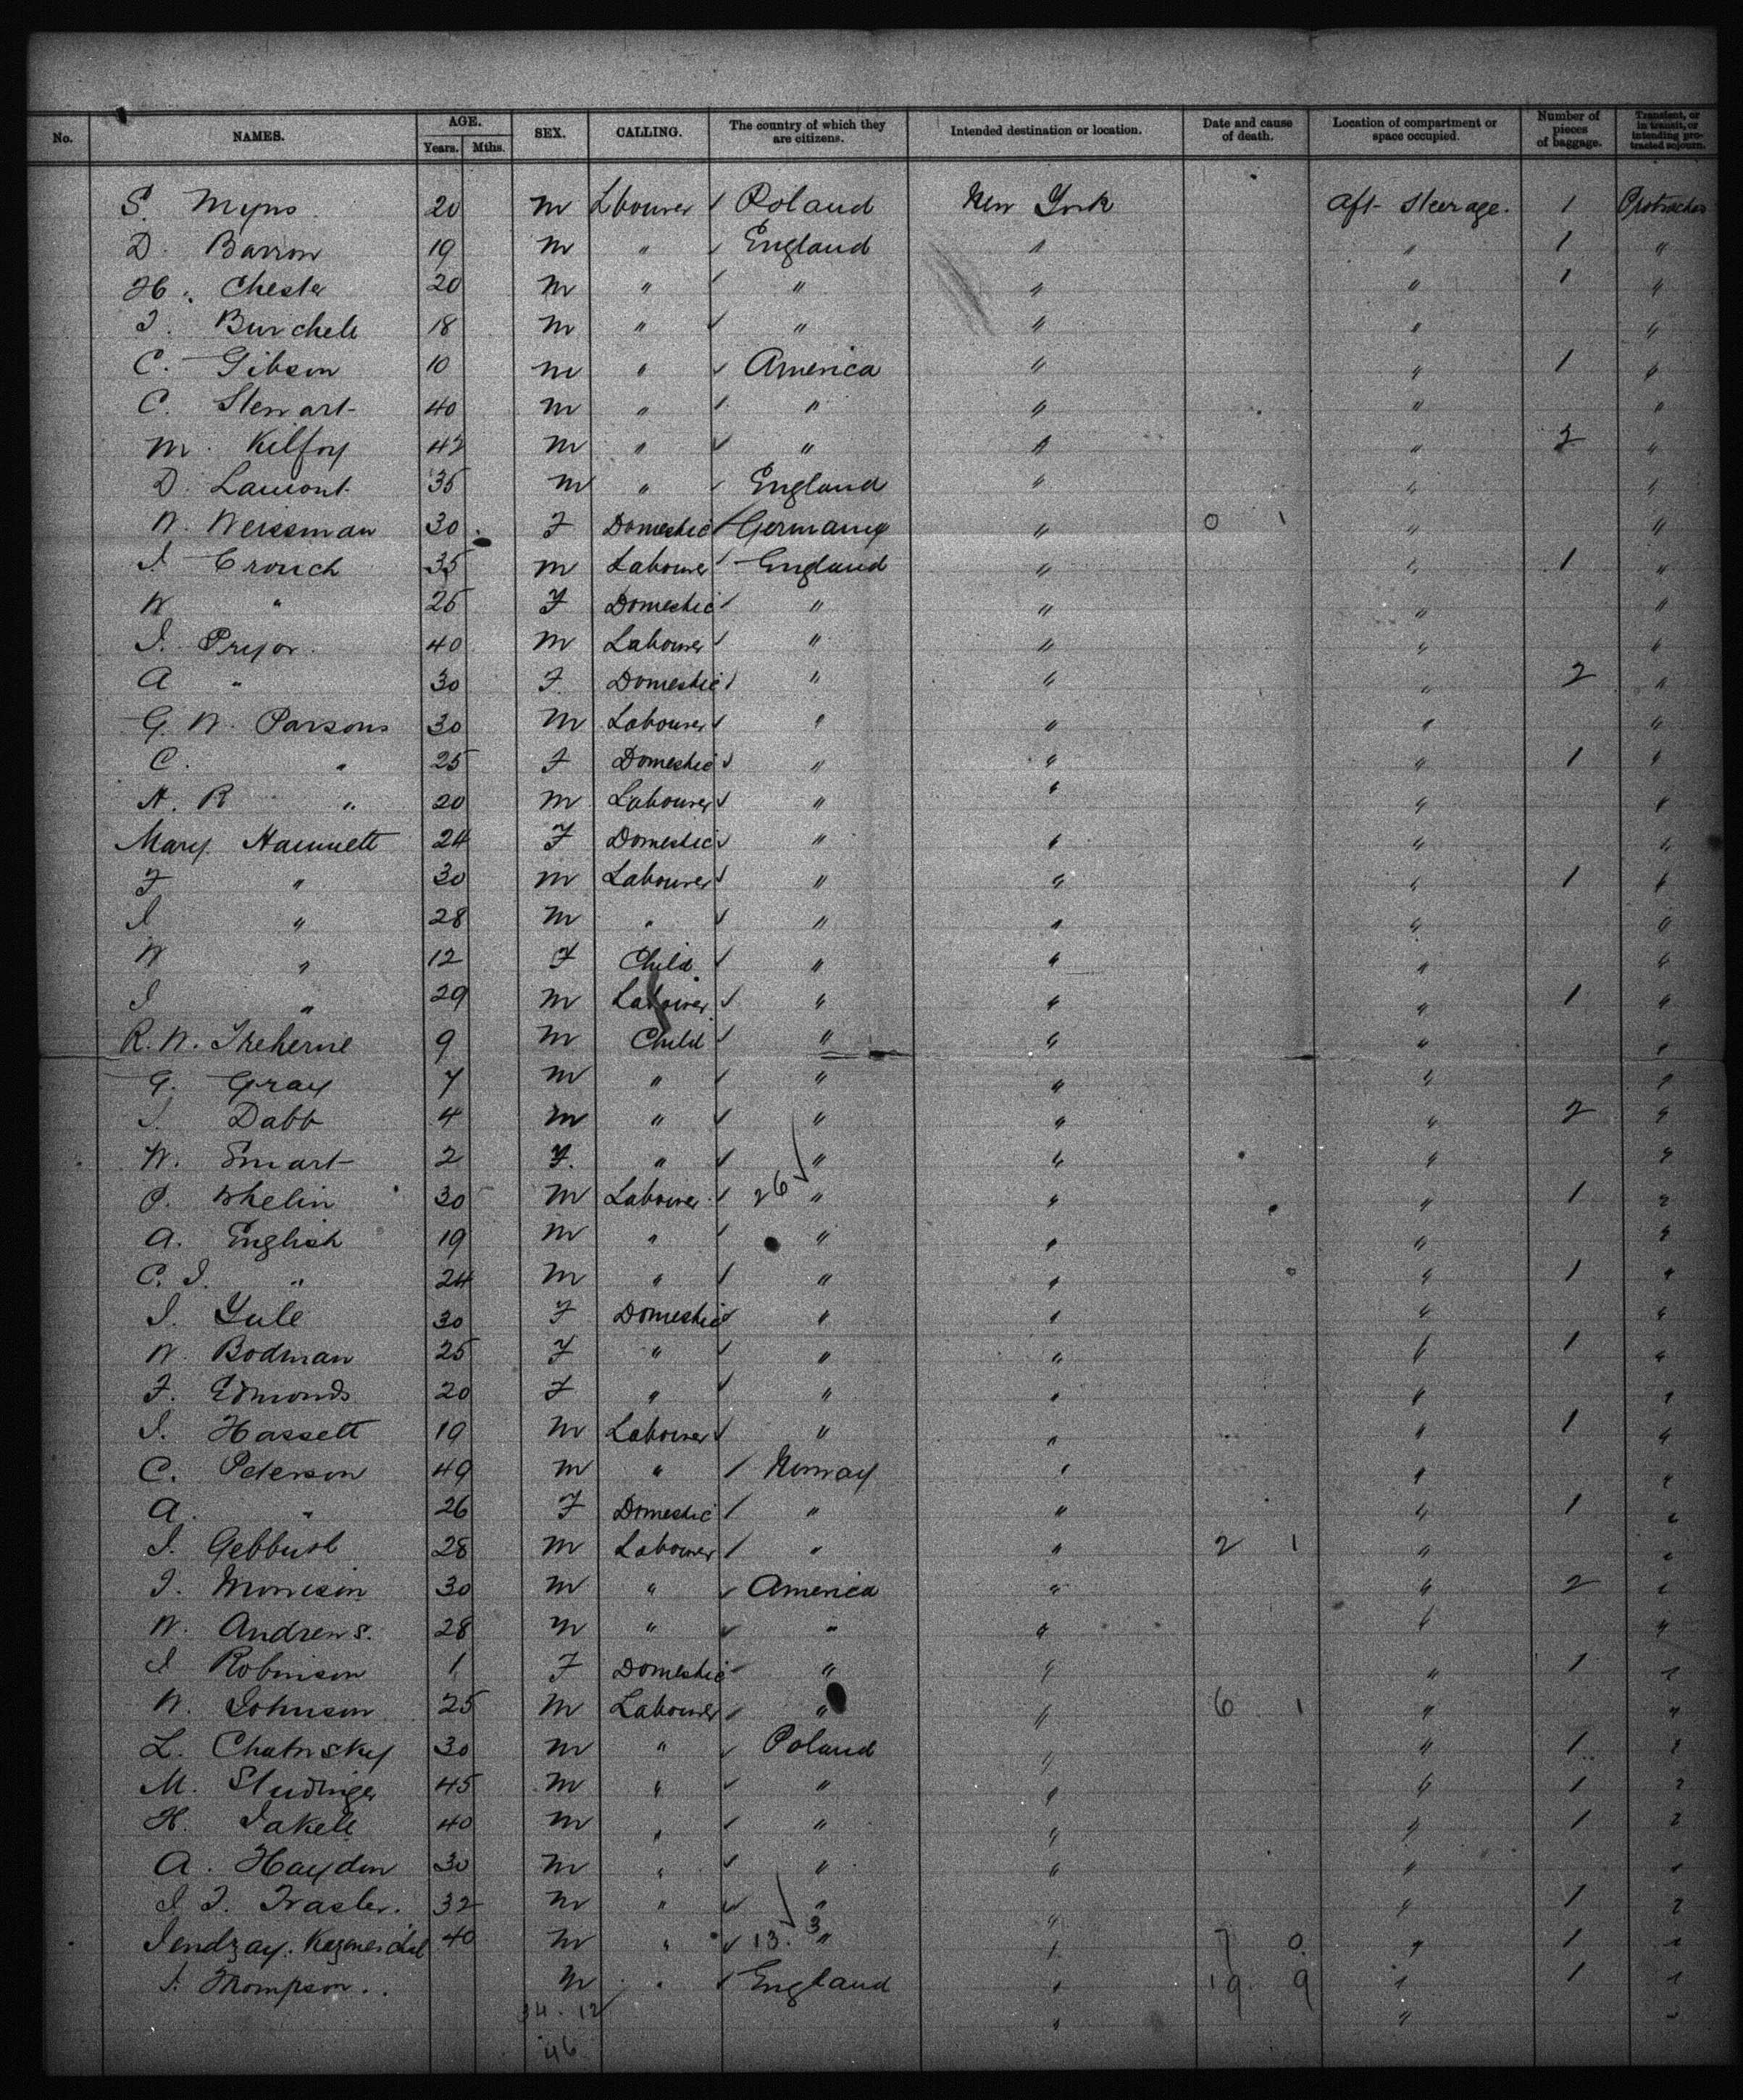 No. NAMES. AGE. Years. Mths. SEX. CALLING. The country of which they are citizens. Intended destination or location. Date and cause of death. Location of compartment or space occupied. Number of pieces of baggage. Transient, or in transit, or intending protracted sojourn.
S. Myns 20 M Lbourer ✓ Poland New York Aft Steerage. 1 Protracted
D. Barron 19 M " ✓ England " " 1 "
H. Chester 20 M " ✓ " " " 1 "
J. Burchell 18 M " ✓ " " " "
C. Gibson 10 M " ✓ America " " 1 "
C. Stewart 40 M " ✓ " " " "
M. Kilfoy 42 M " ✓ " " " 2 "
D. Lamont 35 M " ✓ England " " "
W. Weissman 30 F Domestic ✓ Germany " 0 1 " "
J. Crouch 35 M Labourer ✓ England " " 1 "
W " 25 F Domestic ✓ " " " "
J. Pryor 40 M Labourer ✓ " " " "
A " 30 F Domestic ✓ " " " 2 "
G. W. Parsons 30 M Labourer ✓ " " " "
C. " 25 F Domestic ✓ " " " 1 "
H. R " 20 M Labourer ✓ " " " "
Mary Hammett 24 F Domestic ✓ " " " "
F " 30 M Labourer ✓ " " " 1 "
J " 28 M " ✓ " " " "
W " 12 F Child ✓ " " " "
J " 29 M Labourer ✓ " " " 1 "
R. W. Treherne 9 M Child ✓ " " " "
G. Gray 7 M " ✓ " " " "
J. Dabb 4 M " ✓ " " " 2 "
W. Smart 2 F. " ✓ " " " "
P. Whelin 30 M Labourer ✓ 26 ✓ " " " 1 "
A. English 19 M " ✓ " " " "
C. J. " 24 M " ✓ " " " 1 "
J. Yule 30 F Domestic ✓ " " " "
W. Bodman 25 F " ✓ " " " 1 "
F. Edmonds 20 F " ✓ " " " "
J. Hassett 19 M Labourer ✓ " " " 1 "
C. Peterson 49 M " ✓ Norway " " "
A. " 26 F Domestic ✓ " " " 1 "
J. 28 M Labourer ✓ " " 2 1 " "
J. Morrison 30 M " ✓ America " " 2 "
W. Andrews. 28 M " ✓ " " " "
J Robinson 1 F Domestic ✓ " " " 1 "
W. Johnson 25 M Labourer ✓ " " 6 1 " "
L. Chatnsky 30 M " ✓ Poland " " 1 "
M. Studinger 45 M " ✓ " " " 1 "
H. Jakell 40 M " ✓ " " " 1 "
A. Haydon 30 M " ✓ " " " "
J. J. Frasler. 32 M " ✓ " " " 1 "
Jendzay. 40 M " ✓ 13. 3 " " 7 0 " 1 "
J. Thompson.. M " ✓ England " 19 9 " 1 "
34 . 12 " " "
46